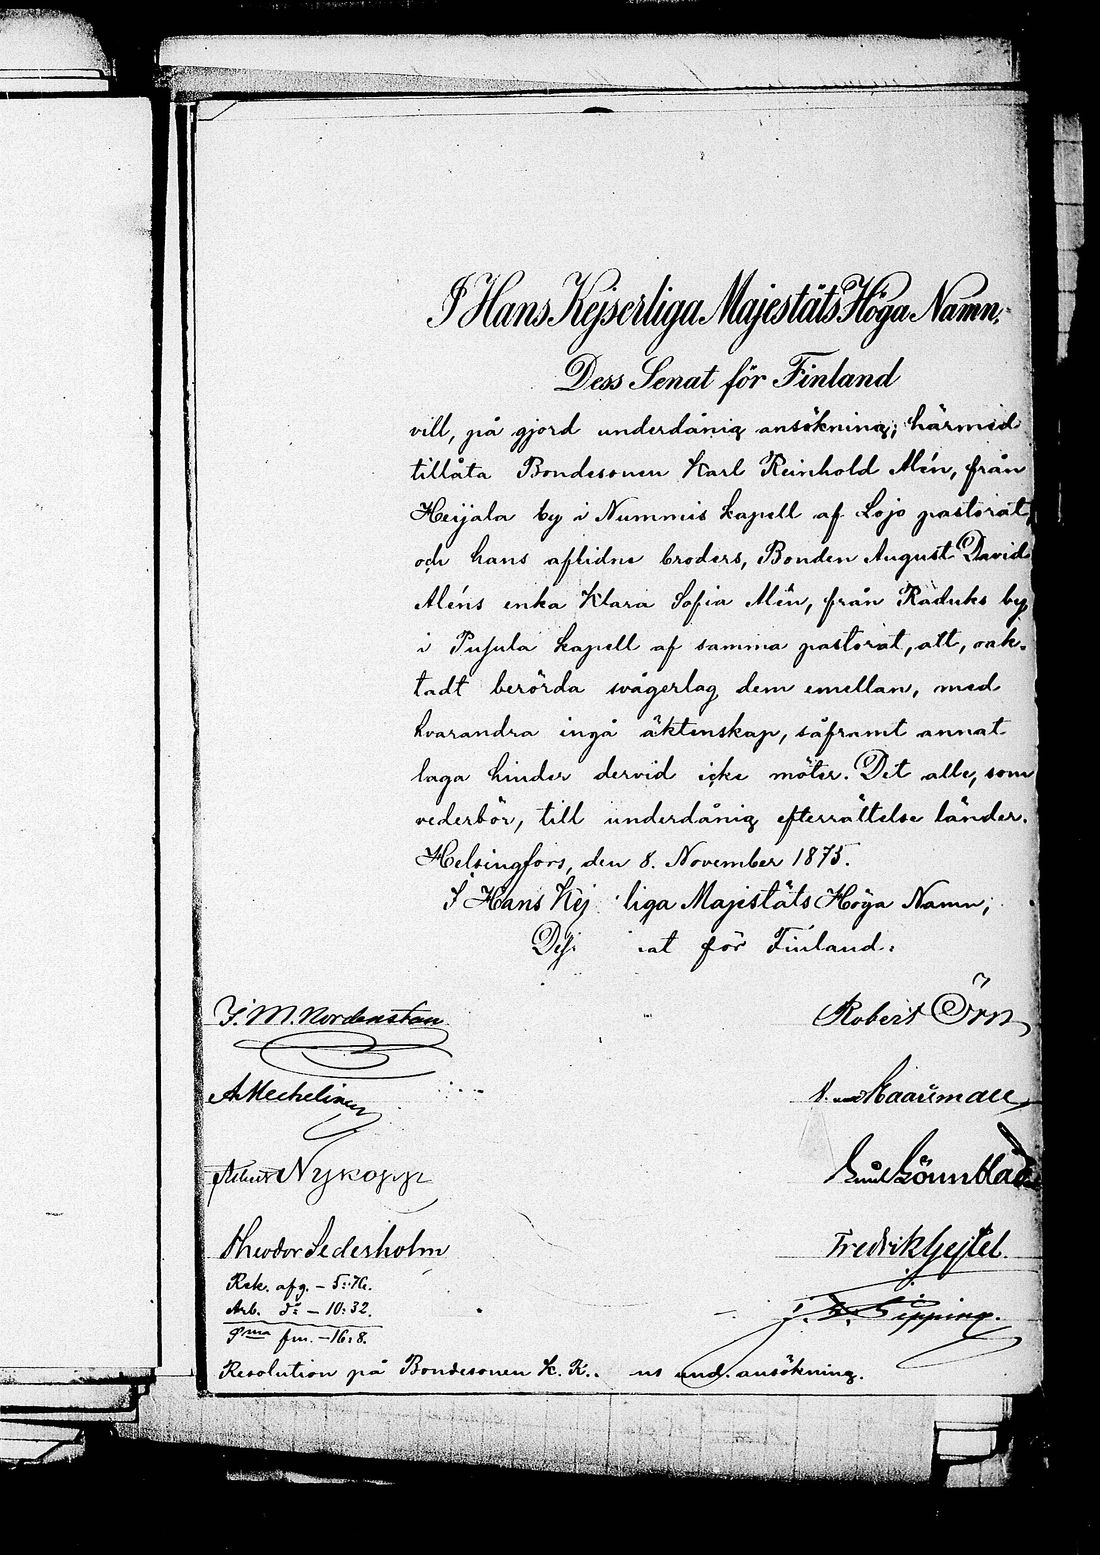 I Hans Kejserliga Majestäts Höga Namn,
Dess Senat för Finland
vill, på gjord underdånig ansökning, härmed
tillåta Bondesonen Karl Reinhold Alén, från
Heijala by i Nummis kapell af Lojo pastorat,
och hans aflidne broders, Bonden August David
Aléns enka Klara Sofia Alén, från Räduks by
i Pusula kapell af samma pastorat, att, oak-
tadt berörda svågerlag dem emellan, med
hvarandra ingå äktenskap, såframt annat
laga hinder dervid icke möter. Det alle, som
vederbör, till underdånig efterrättelse länder.
Helsingfors, den 8. November 1875.
I Hans Kej liga Majestäts Höga Namn,
De at för Finland:
J. M. Nordenstam
Robert Örn
A. Mechelin
Nykopp
Lönnblad
Theodor Sederholm
Fredrik Gejtel.
Rek. afg. – 5: 76.
Arb. do – 10: 32.
Sma fm. – 16: 8.
Resolution på Bondesonen K. R. ns und. ansökning.